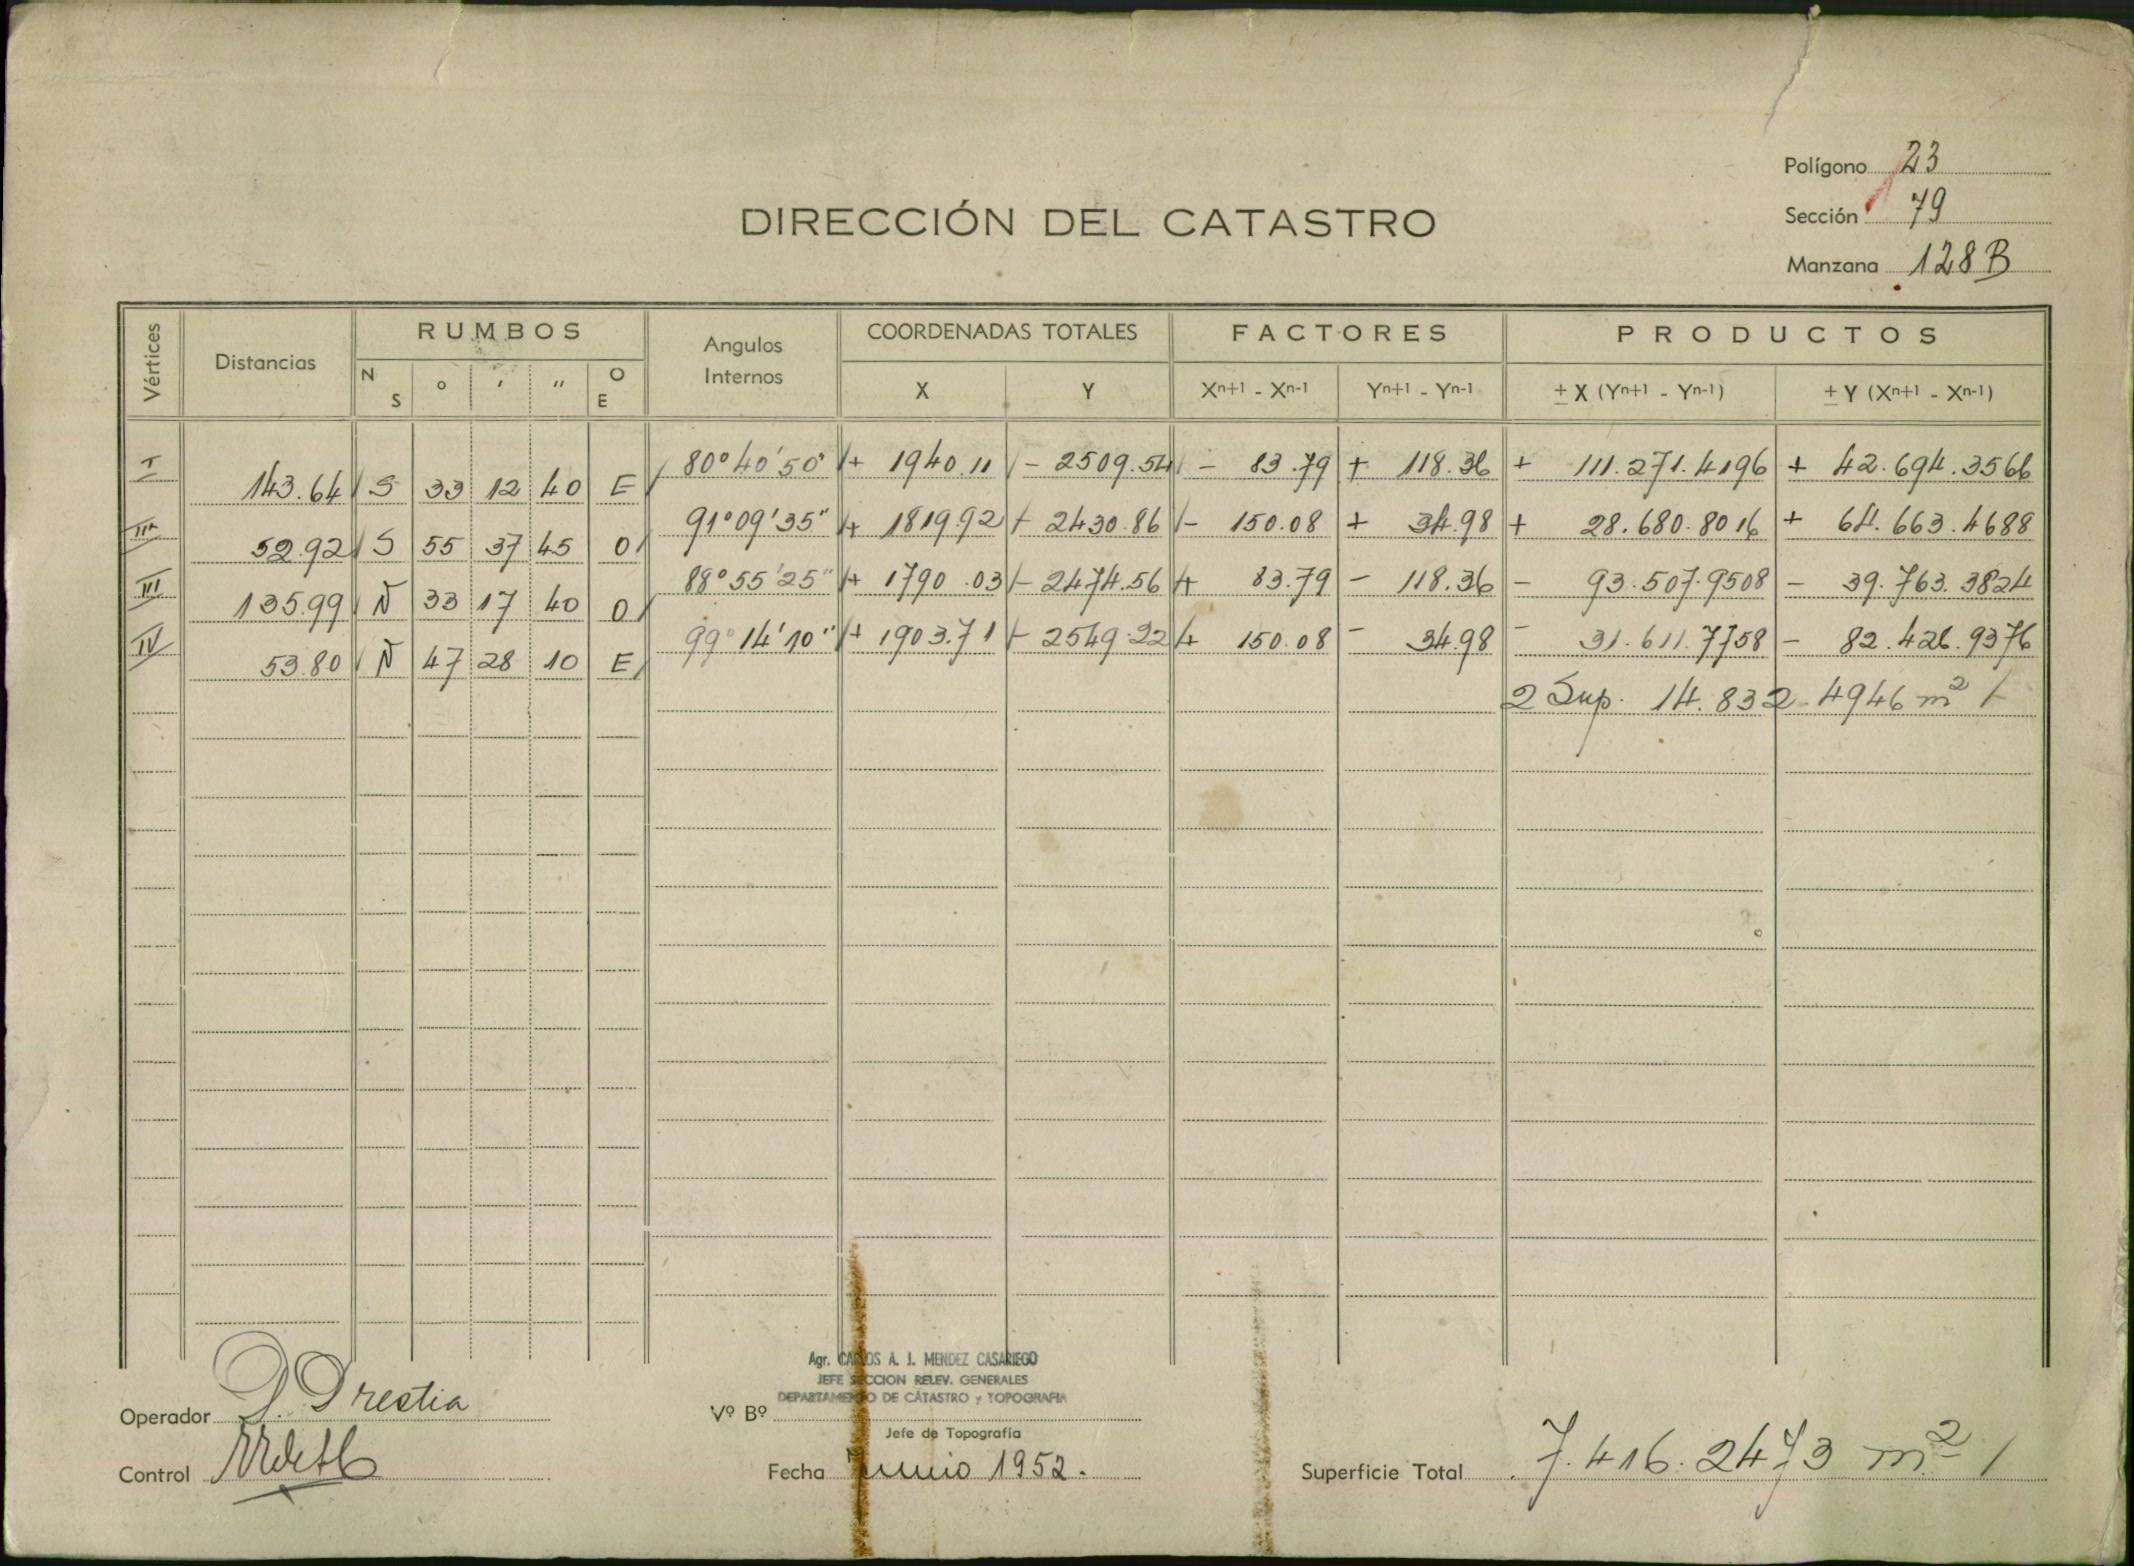 Polígono 23
Sección 79
Manzana 128 B
DIRECCIÓN DEL CATASTRO
Vértices Distancias RUMBOS Angulos Internos COORDENADAS TOTALES FACTORES PRODUCTOS
N S ° ' " O E X Y Xn+1 - Xn-1 Yn+1 - Yn-1 ± X (Yn+1 - Yn-1) ± Y (Xn+1 - Xn-1)
I 80° 40' 50" + 1940.11 - 2509.54 - 83.79 + 118.36 + 111.271.4196 + 42.694.3566
143.64 S 33 12 40 E
II 91° 09' 35" + 1819.92 - 2430.86 - 150.08 + 34.98 + 28.680.8016 + 64.663.4688
52.92 S 55 37 45 O
III 88° 55' 25" + 1790.03 - 2474.56 + 83.79 - 118.36 - 93.507.9508 - 39.763.3824
135.99 N 33 17 40 O
IV 99° 14' 10" + 1903.71 - 2549.22 + 150.08 - 34.98 - 31.611.7758 - 82.426.9376
53.80 N 47 28 10 E
2 Sup. 14.832.4946 m²
Agr. CARLOS A. J. MENDEZ CASARIEGO
JEFE SECCION RELEV. GENERALES
DEPARTAMENTO DE CATASTRO y TOPOGRAFIA
Operador D. Orestia
Vº Bº
Jefe de Topografía
Control
Fecha Junio 1952.
Superficie Total 7.416.2473 m²